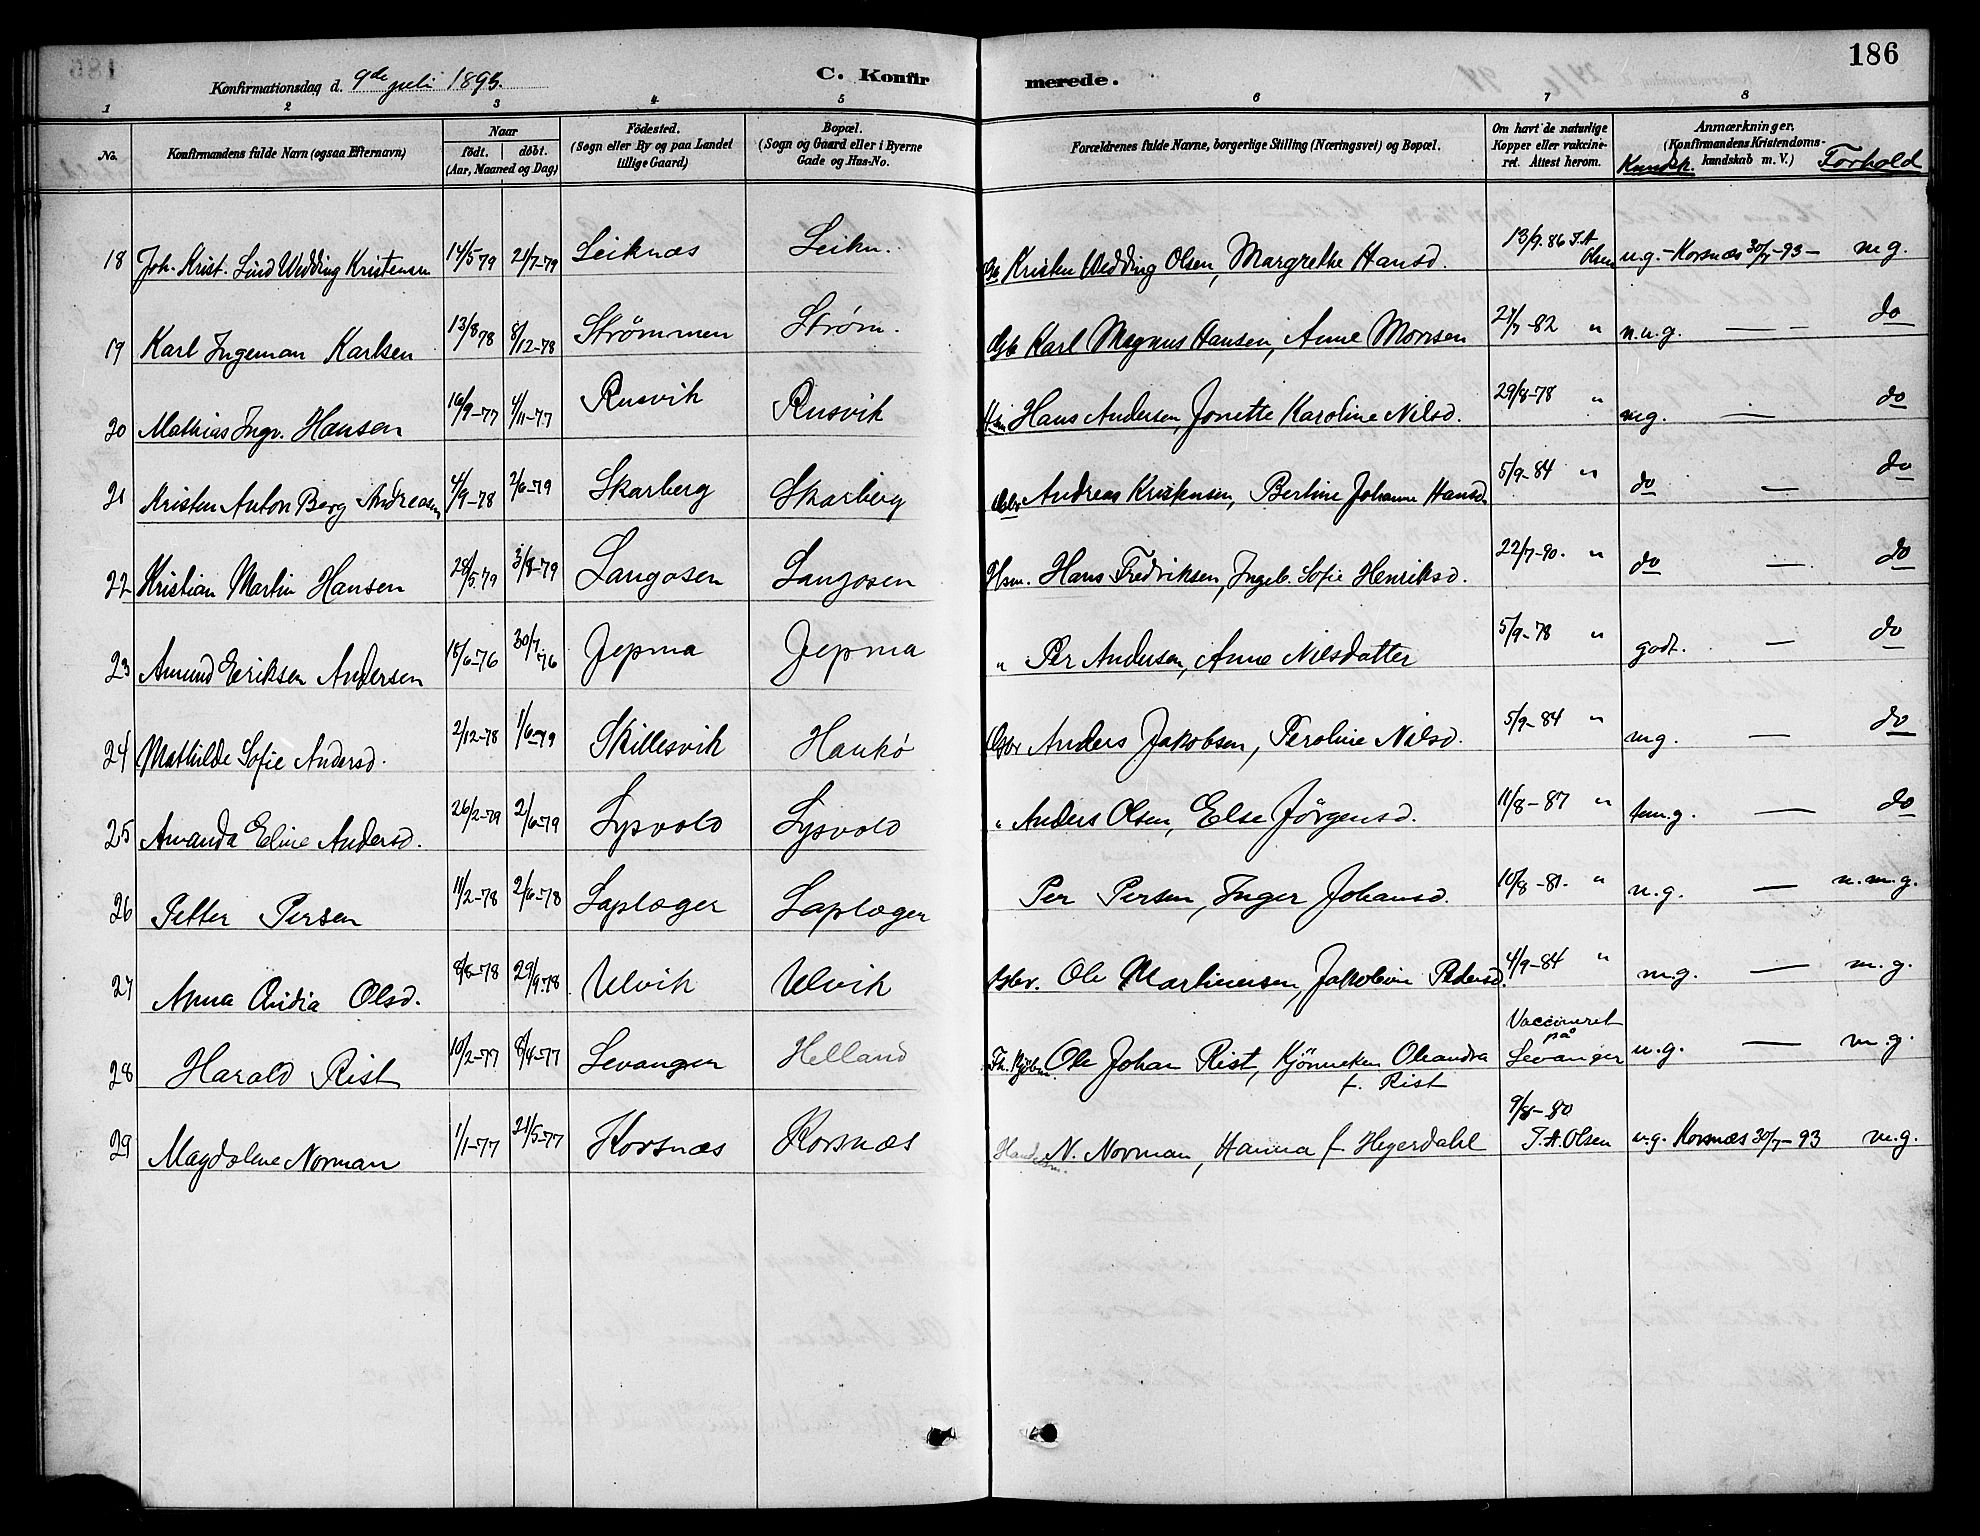 186
Konfirmationsdag d. 9de juli 1893.
C. Konfirmerede.
1 2 3 4 5 6 7 8
No. Konfirmandens fulde Navn (ogsaa Efternavn) Naar födt. döbt. (Aar, Maaned og Dag) Födested. (Sogn eller By og paa Landet tillige Gaard) Bopæl. (Sogn og Gaard eller i Byerne Gade og Hus-No. Forældrenes fulde Navne, borgerlige Stilling (Næringsvei) og Bopæl. Om havt de naturlige Kopper eller vakcineret. Attest herom. Anmærkninger. (Konfirmandens Kristendomskundskab m. V.) Kundsk. Forhold
18 Joh. Krist. Lind Wedding Kristensen 14/5 79 21/7-79 Leiknæs Leikn. Kristen Wedding Olsen, Margrethe Hansd. 13/9. 86 J. A Olsen n.g. - Korsnæs 30/7-93 - m.g.
19 Karl Ingeman Karlsen 13/8 78 8/12-78 Strømmen Strøm. Karl Magnus Hansen, Anne Monsen 21/7-82 " n.u.g. — do
20 Mathias Ingv. Hansen 16/9-77 4/11-77 Rusvik Rusvik Hsm Hans Andersen, Jonette Karoline Nilsd. 29/8-78 " mg. — do
21 Kristen Anton Berg Andreasen 4/9-78 2/6-79 Skarberg Skarberg Andreas Kristensen, Berline Johanne Hansd. 5/9-84 " do — do
22 Kristian Martin Hansen 28/5 79 3/8-79 Langosen Langosen Hsm. Hans Fredriksen, Ingeb. Sofie Henriksd. 22/7-90. " do — do
23 Amund Eriksen Andersen 18/6-76 30/7 76 Jepma Jepma " Per Andersen, Anne Nilsdatter 5/9-78 " godt. — do
24 Mathilde Sofie Andersd. 2/12-78 1/6-79 Skillesvik Hankö Anders Jakobsen, Peroline Nilsd. 5/9-84 " mg. — do
25 Amanda Eline Andersd. 26/2-79 2/6-79 Lysvold Lysvold " Anders Olsen, Else Jörgensd. 11/8-87 " tem.g. — do
26 Petter Persen 11/2-78 2/6-78 Laplæger Laplæger Per Persen, Inger Johansd. 10/8-81. " n.g. — n.m.g.
27 Anna Olsd. 8/8-78 29/9-78 Ulvik Ulvik Ole Martinensen, Jakobine Pedersd. 4/9-84 " m.g. — m.g.
28 Harald Rist 10/2-77 8/4-77 Levanger Helland Ole Johan Rist, Kjönneken Oleandra f. Rist Vaccineret på Levanger n.g. — m.g.
29 Magdalene Norman 1/1-77 21/5-77 Korsnæs Korsnæs Handelsm. N. Norman, Hanna f. Heyerdahl 9/8-80 J. A. Olsen n.g. Korsnæs 30/7-93 m.g.